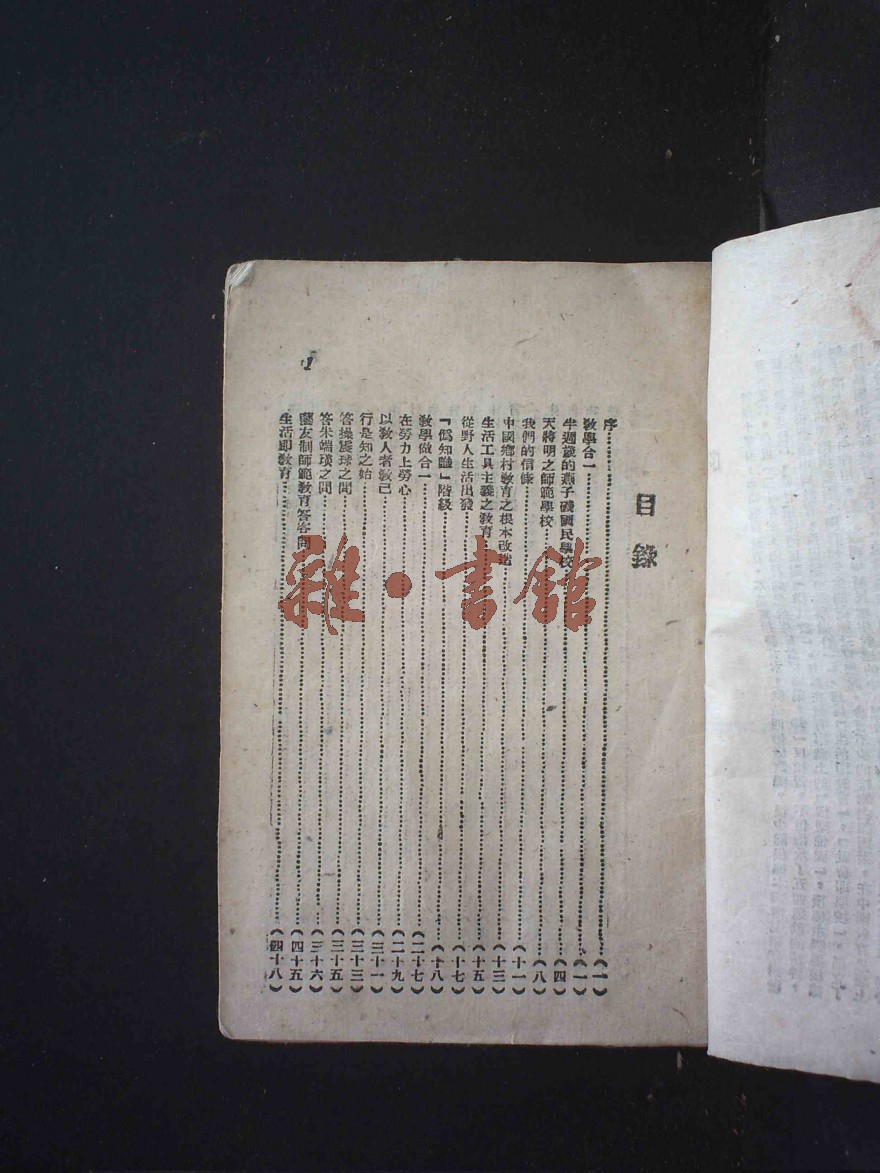 目錄
序……(一)
敎學合一……(一)
半週歲的燕子磯國民學校……(四)
天將明之師範學校……(八)
我們的信條……(十一)
中國鄉村敎育之根本改造……(十三)
生活工具主義之敎育……(十五)
從野人生活出發……(十七)
「僞知識」階級……(十八)
敎學做合一……(二十七)
在勞力上勞心……(二十九)
以敎人者敎己……(三十一)
行是知之始……(三十三)
答操震球之問……(三十五)
答朱端琰之問……(三十六)
藝友制師範敎育答客問……(四十五)
生活卽敎育……(四十八)
1
雜·書館